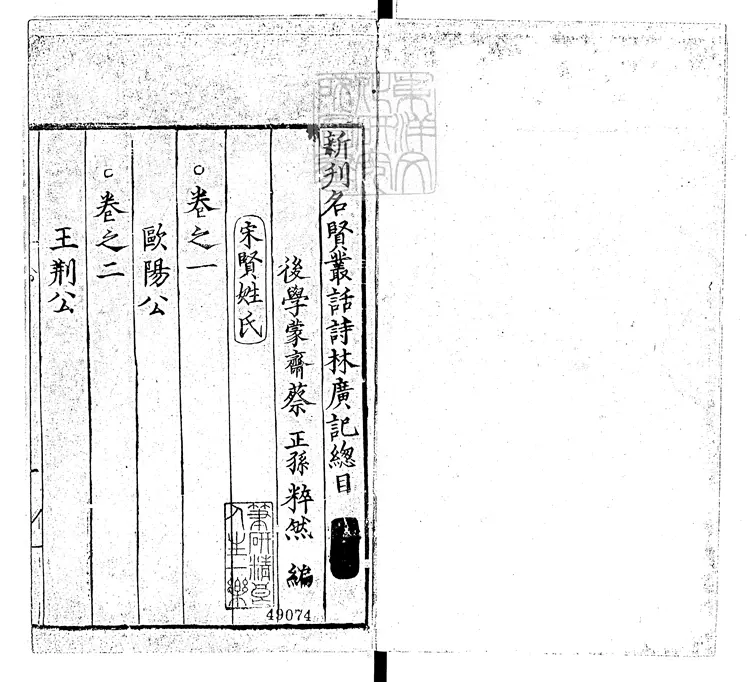 新刊名賢叢話詩林廣記總目
後學蒙齋蔡正孫粹然編
宋賢姓氏
○卷之一
歐陽公
○卷之二
王荆公
筆研精良人生一樂
49074